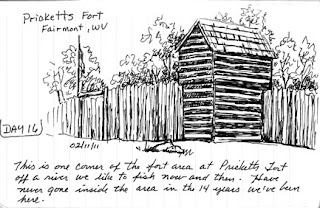 Pricketts Fort
Fairmont, WV
DAY 16
02/11/11
This is one corner of the fort area at Pricketts Fort
off a river we like to fish now and then. Have
never gone inside the area in the 14 years we've been
here.